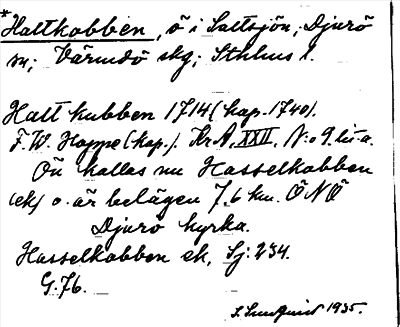 *Haltkobben, ö i Saltsjön, Djurö
sn; Värmdö skg; Sthlms l.
Halt kubben 1714 (kop. 1740).
F. W. Hoppe (kop.). Kr A, XXII, N:o 9. lit a.
Ön kallas nu Hasselkobben
(ek) o. är belägen 7,6 km. ÖNÖ
Djurö kyrka.
Hasselkobben ek, Sj: 234.
G: 76.
S. Lundquist 1935.